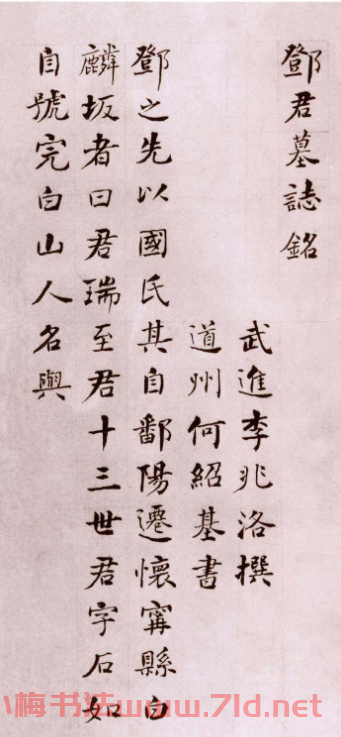 鄧君墓誌銘
武進李兆洛撰
道州何紹基書
鄧之先以國氏其自鄱陽遷懷甯縣白
麟坂者曰君瑞至君十三世君字石如
自號完白山人名與
小梅书法www.7ld.net